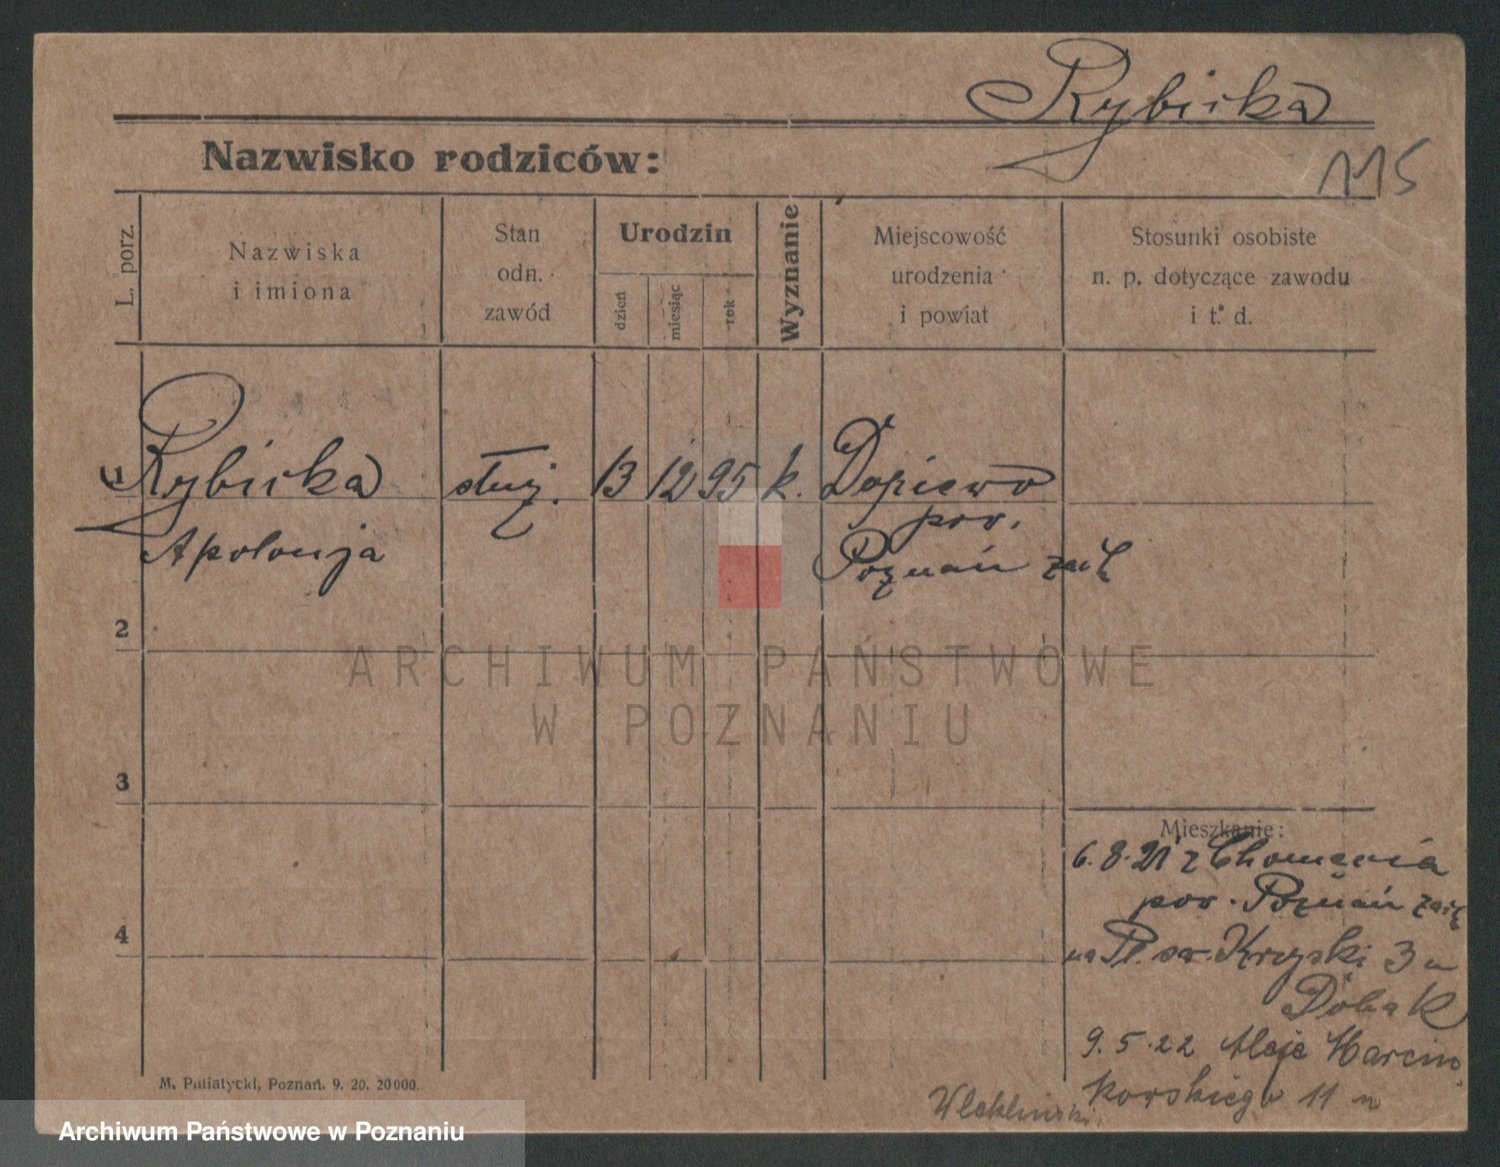 Rybicka
Nazwisko rodziców:
115
L. porz.
Nazwiska
i imiona
Stan
odn.
zawód
Urodzin
dzień
miesiąc
rok
Wyznanie
Miejscowość
urodzenia
i powiat
Stosunki osobiste
n. p. dotyczące zawodu
i t. d.
1 Rybicka służ. 13 12 95 k. Dopiewo
Apolonja
pow.
Poznań zach
2
3
4
ARCHIWUM PAŃSTWOWE
W POZNANIU
Mieszkanie:
6.8.21 z Chomęcia
pow. Poznań zach
na Pl. św. Krzyski 3 u
9.5.22 Aleje Marcin
kowskiego 11 u
M. Putiatycki, Poznań. 9. 20. 20000.
Archiwum Państwowe w Poznaniu